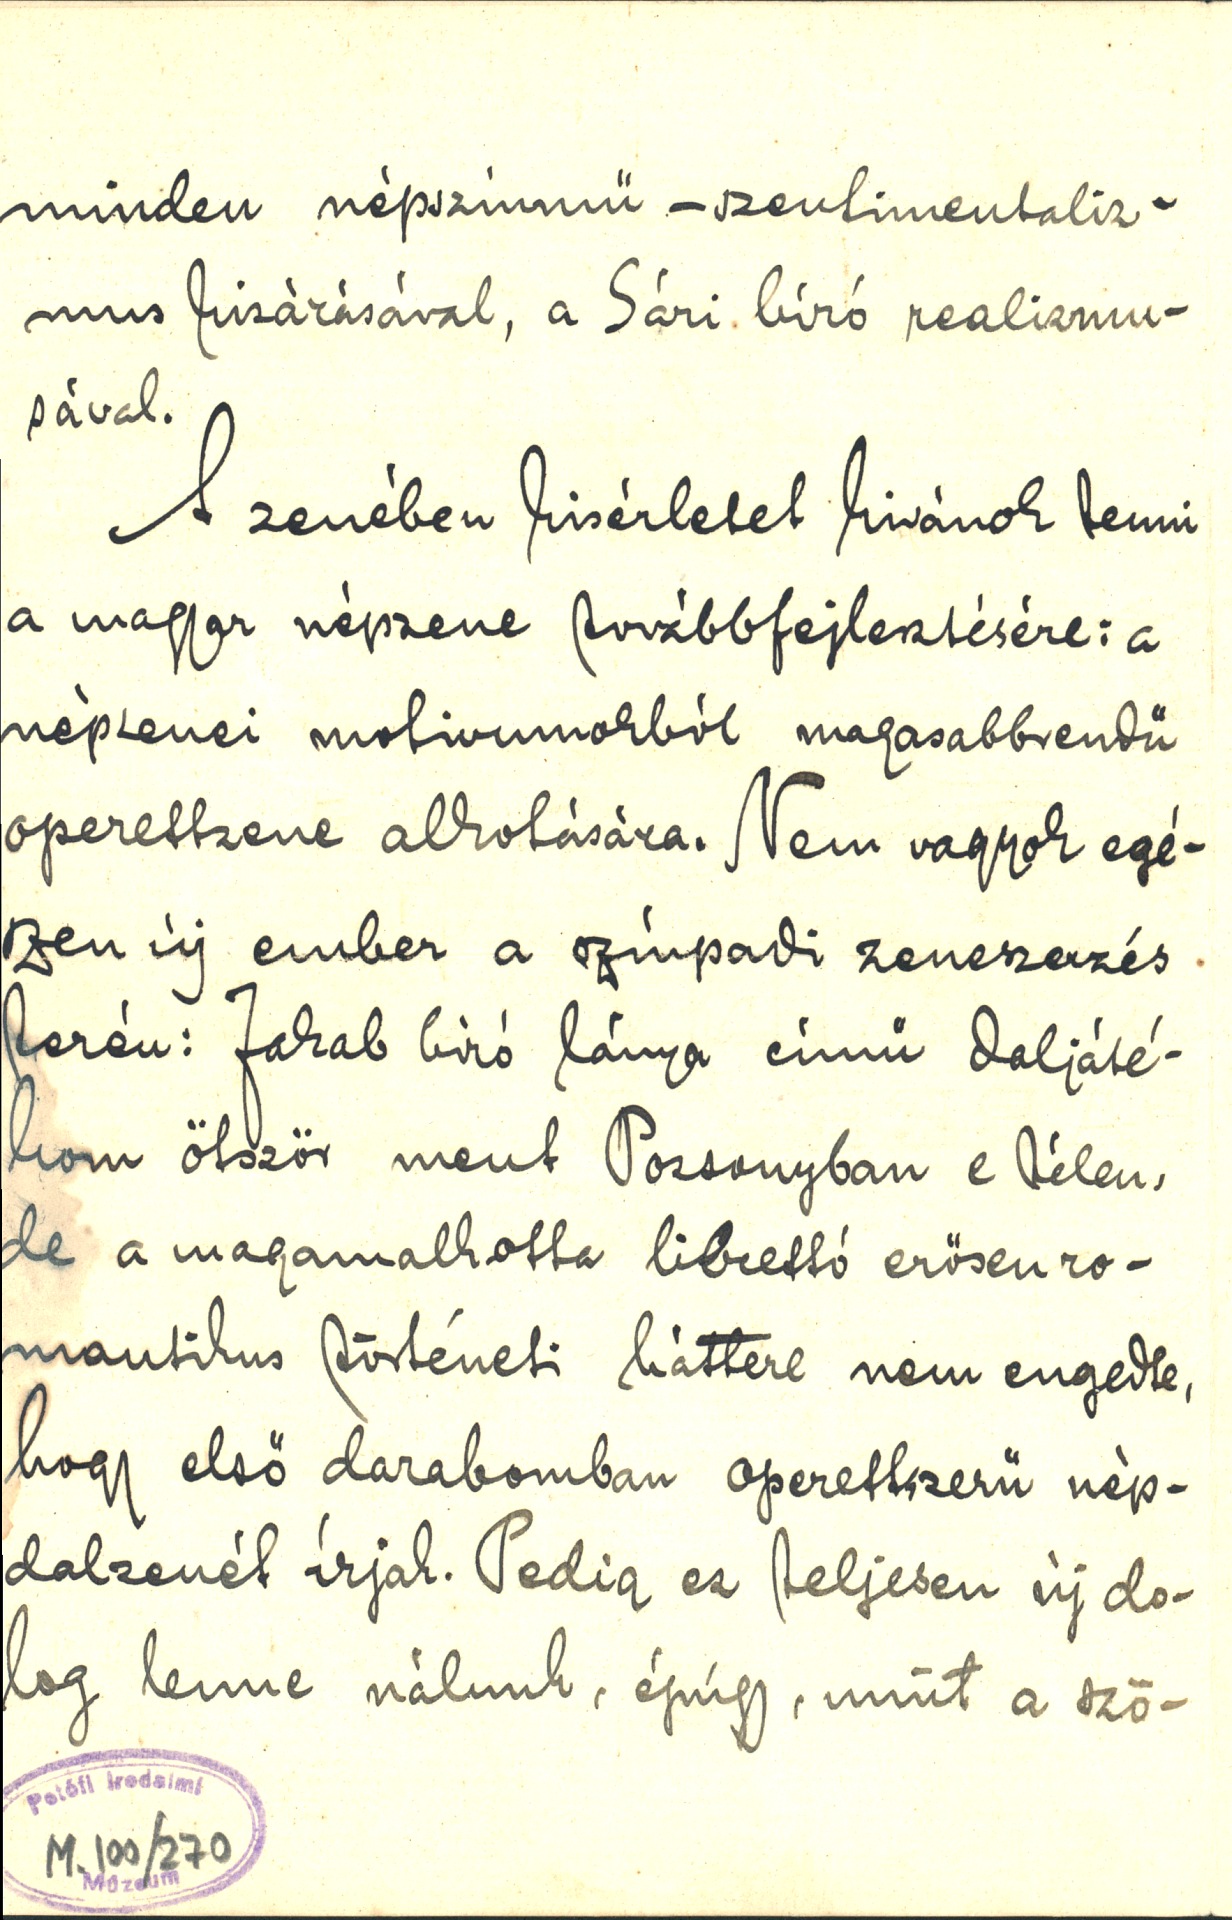 minden népszínmű-szentimentaliz-
mus kizárásával, a Sári bíró realizmu-
sával.
A zenében kisérletet kivánok tenni
a magyar népzene továbbfejlesztésére: a
népzenei motivumokból magasabbrendű
operettzene alkotására. Nem vagyok egé-
szen új ember a színpadi zeneszerzés
terén: Jakab biró lánya című daljáté-
kom ötször ment Pozsonyban e télen,
de a magamalkotta librettó erősen ro-
mantikus történeti háttere nem engedte,
hogy első darabomban operettszerű nép-
dalzenét írjak. Pedig ez teljesen új do-
log lenne nálunk, épúgy, mint a szö-
Petőfi Irodalmi
M. 100/270
Múzeum